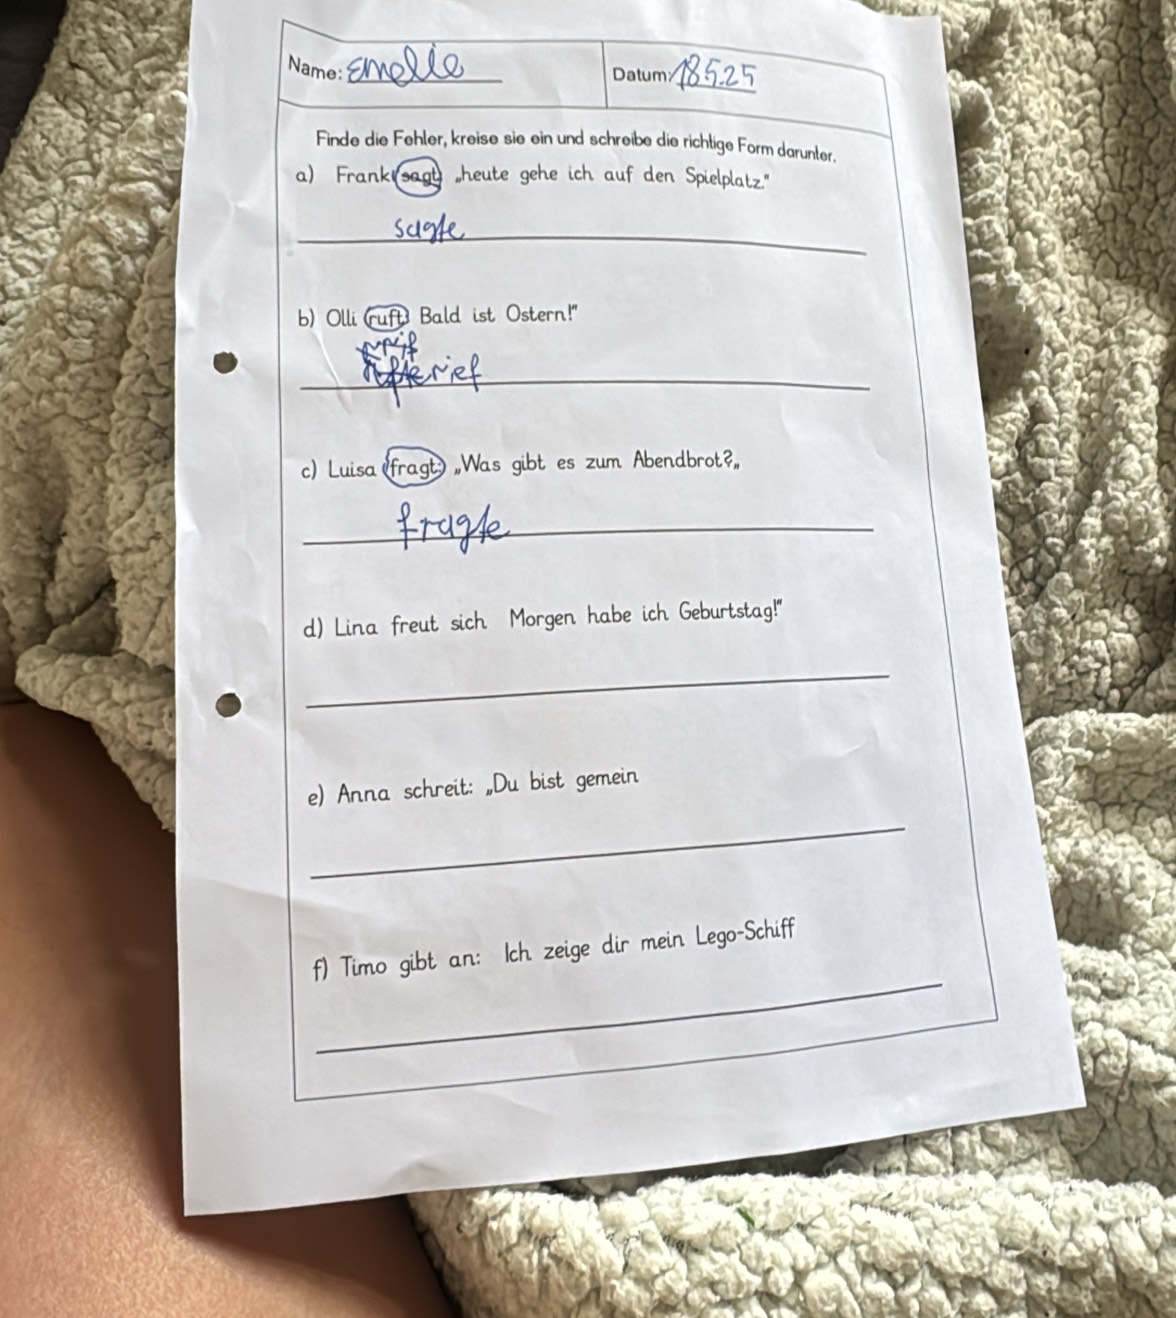 Name: Emelie
Datum: 18.5.25
Finde die Fehler, kreise sie ein und schreibe die richtige Form darunter.
a) Frank sagt „heute gehe ich auf den Spielplatz."
sagte
b) Olli ruft Bald ist Ostern!"
rief
c) Luisa fragt: „Was gibt es zum Abendbrot?„
fragte
d) Lina freut sich Morgen habe ich Geburtstag!"
e) Anna schreit: „Du bist gemein
f) Timo gibt an: Ich zeige dir mein Lego-Schiff